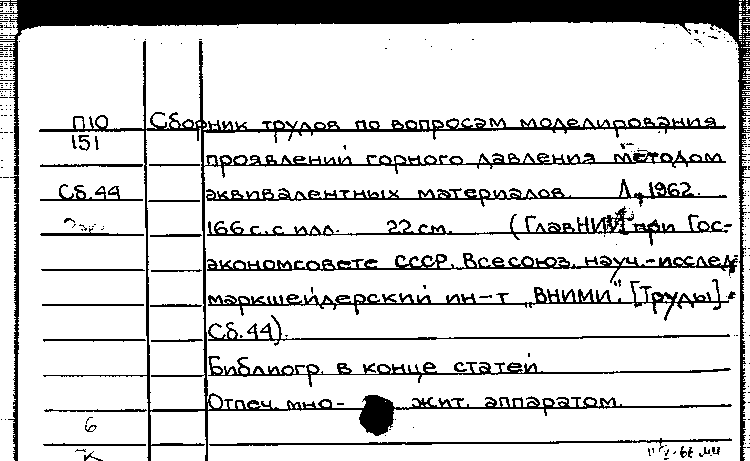 П10 Сборник трудов по вопросам моделирования
151
проявлений горного давления методом
Сб.44 эквивалентных материалов. Л., 1962.
166 с. с илл. 22 см. (ГлавНИИ при Гос-
экономсовете СССР. Всесоюз. науч.-исслед.
маркшейдерский ин-т „ВНИМИ". [Труды].
Сб. 44).
Библиогр. в конце статей.
Отпеч. мно- жит. аппаратом.
6
К